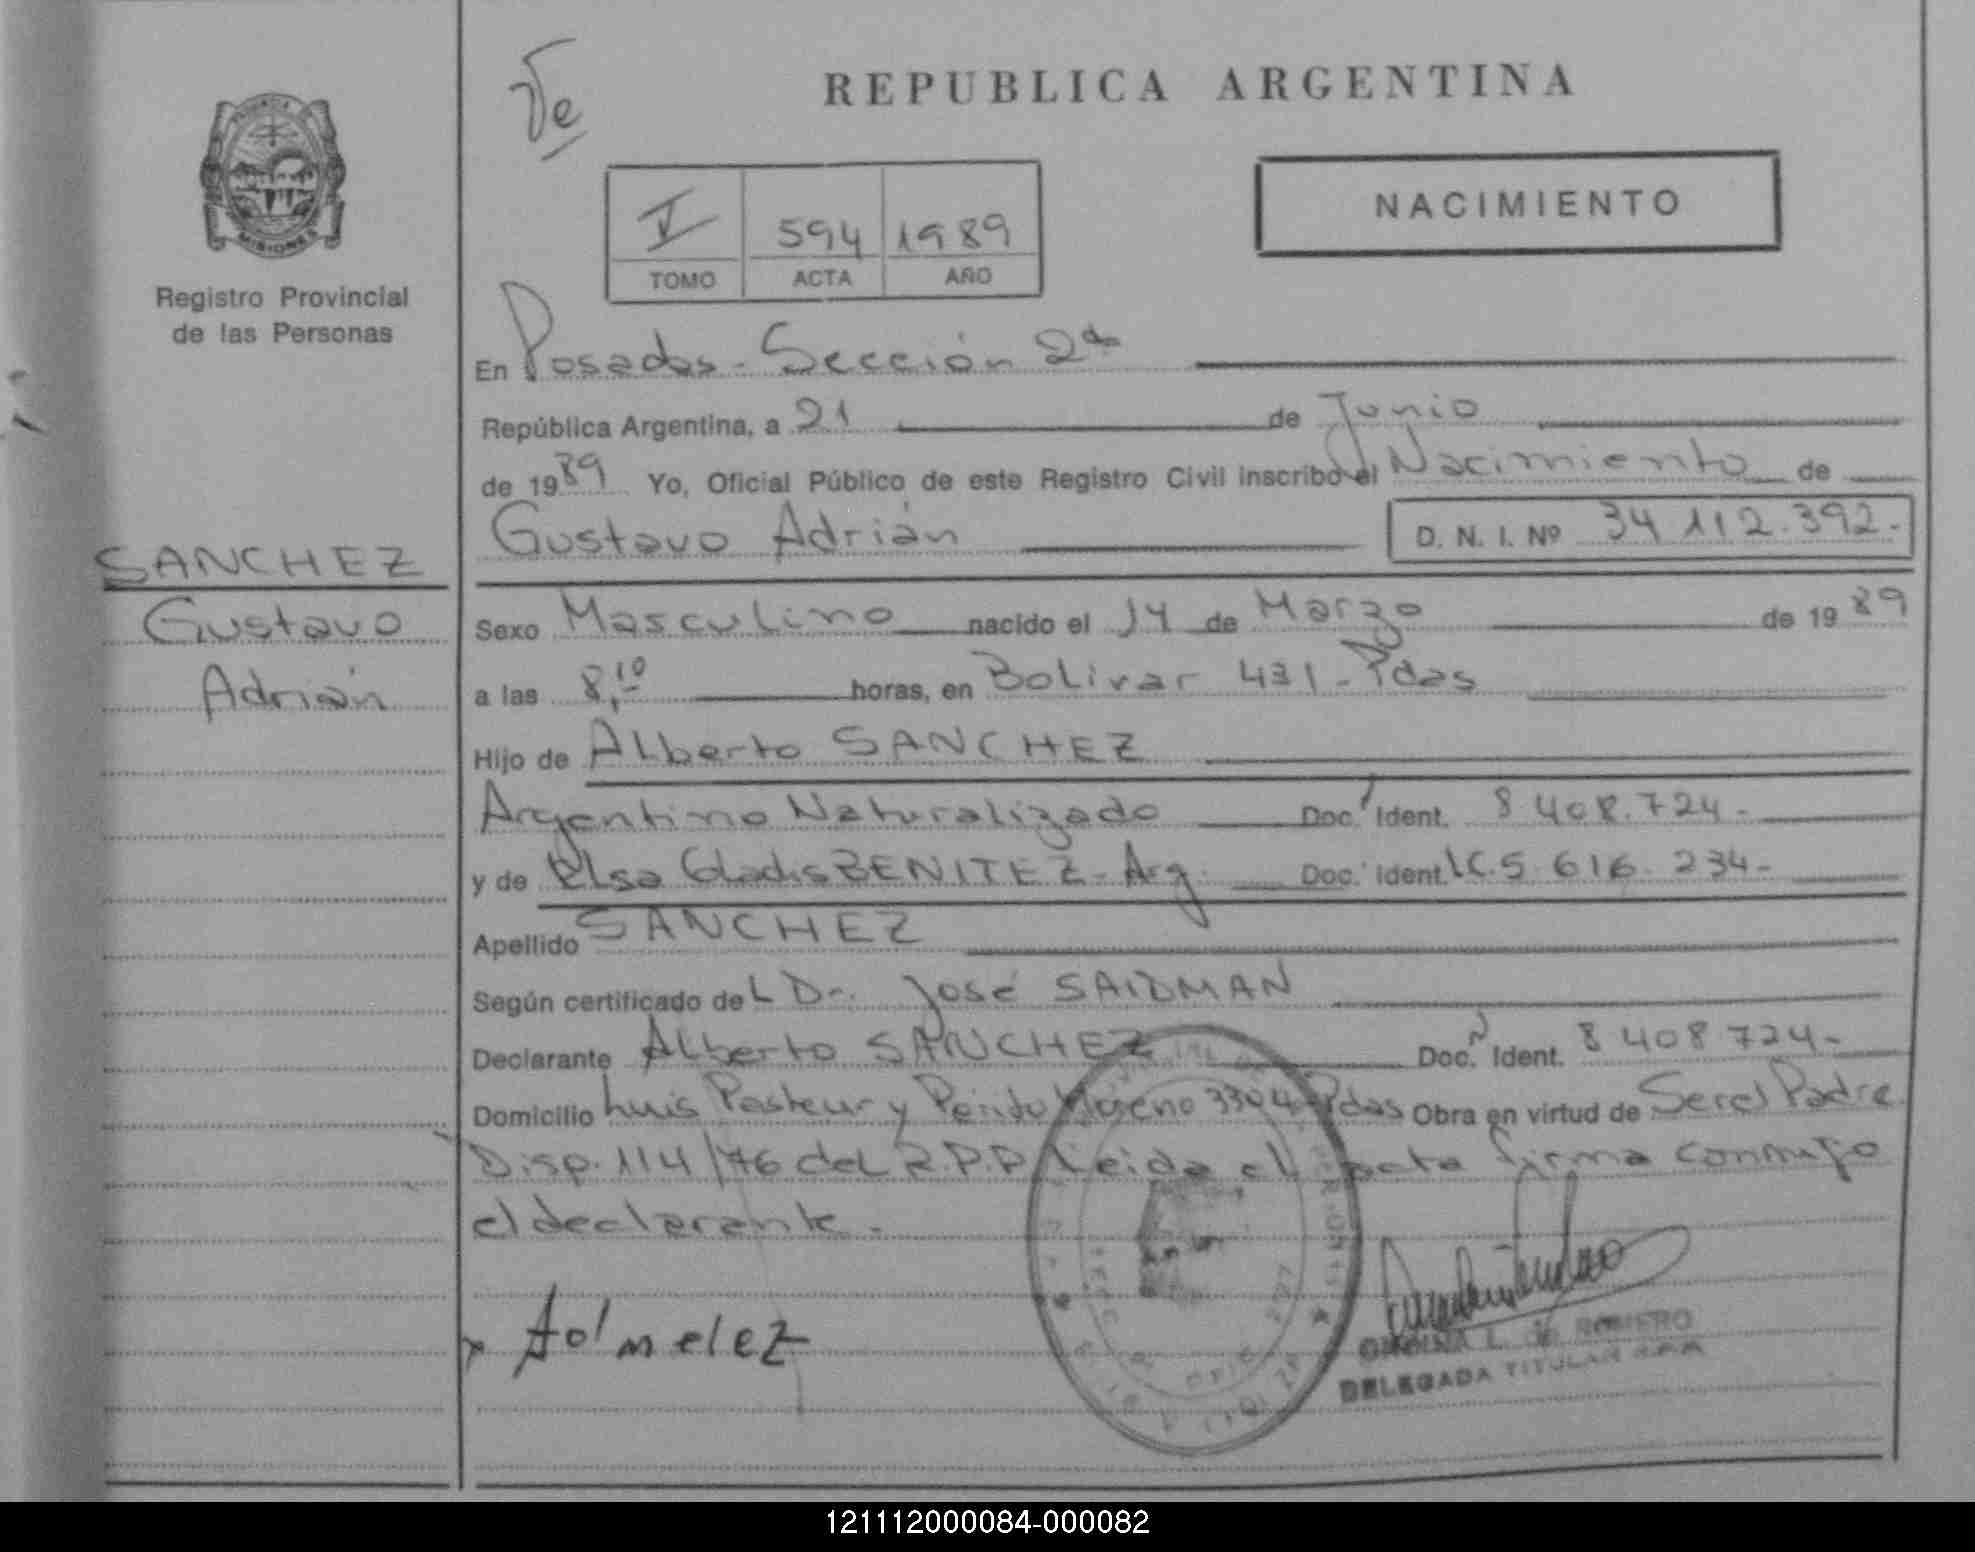 Ve
REPUBLICA ARGENTINA
NACIMIENTO
V 594 1989
TOMO ACTA AÑO
MISIONES
Registro Provincial
de las Personas
En Posadas - Sección 2da
República Argentina, a 21 de Junio
de 1989 Yo, Oficial Público de este Registro Civil inscribo el Nacimiento de
Gustavo Adrián D. N. I. Nº 34 112.392.-
SANCHEZ
Gustavo
Adrián
Sexo Masculino nacido el 14 de Marzo de 1989
a las 8,10 horas, en Bolivar 431 - Pdas
Hijo de Alberto SANCHEZ
Argentino Naturalizado Doc. Ident. 8 408.724-
y de Elsa Gladis BENITEZ - Arg. Doc. Ident. LC.5 616.234-
Apellido SANCHEZ
Según certificado del Dr. José SAIDMAN
Declarante Alberto SANCHEZ Doc. Ident. 8 408 724-
Domicilio Luis Pasteur y Perito Moreno 3304 Pdas Obra en virtud de Ser el Padre
Disp. 114/76 del R.P.P. Leida el acta firma conmigo
el declarante.
L. de ROMERO
DELEGADA TITULAR R.P.P.
121112000084-000082